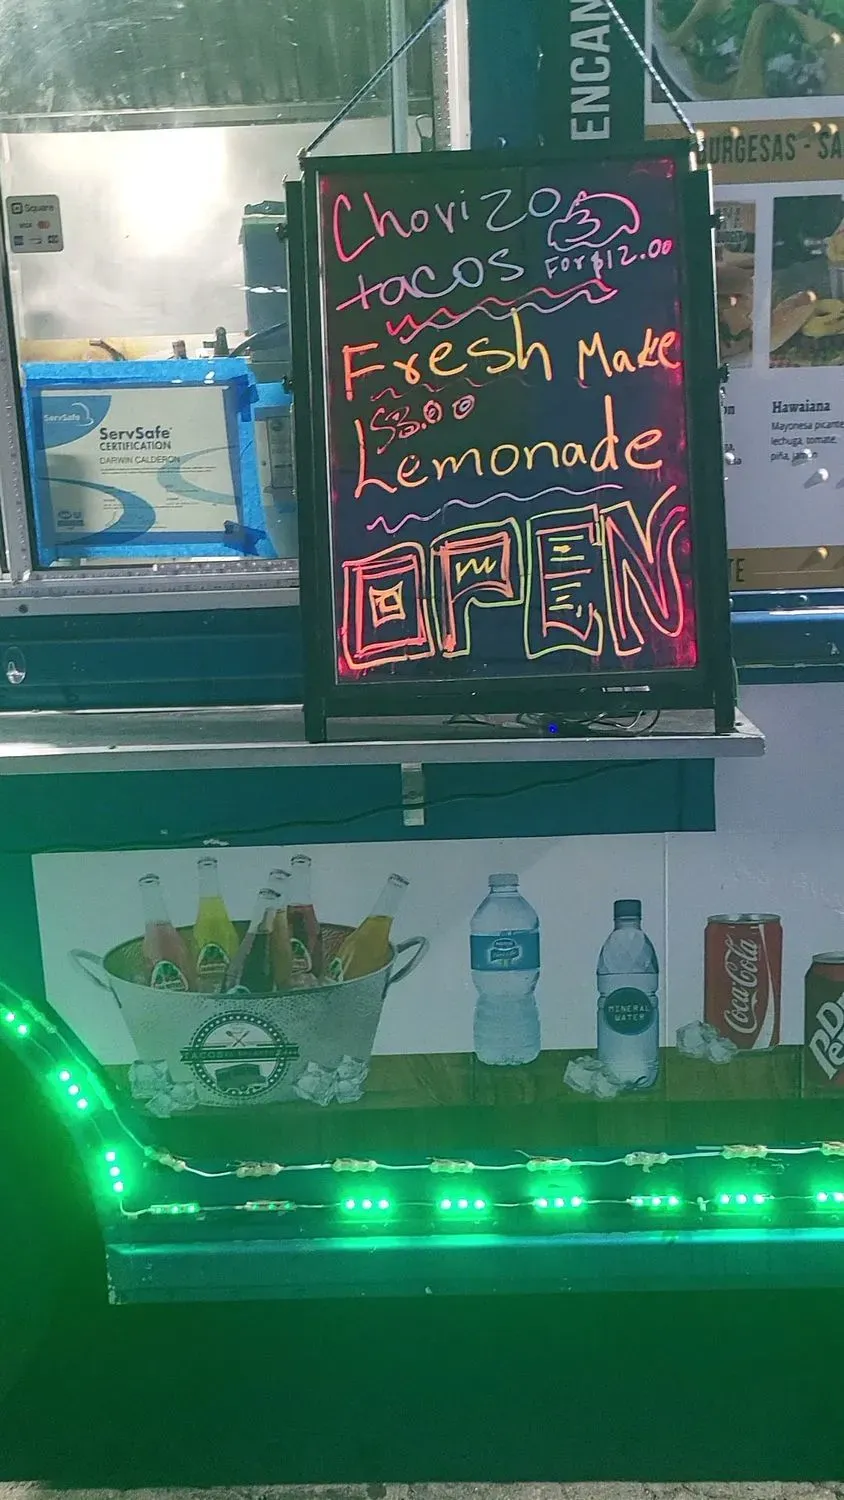 ENCAN
BURGESAS - SA
Square
VISA
Chorizo
tacos 3 FOR $12.00
Fresh Make
$3.00
Lemonade
OPEN
ServSafe
ServSafe
CERTIFICATION
DARWIN CALDERON
Hawaiana
Mayonesa picante
lechuga, tomate,
piña, jamón
TE
TACOS
MINERAL
WATER
Coca-Cola
Dr
Pe